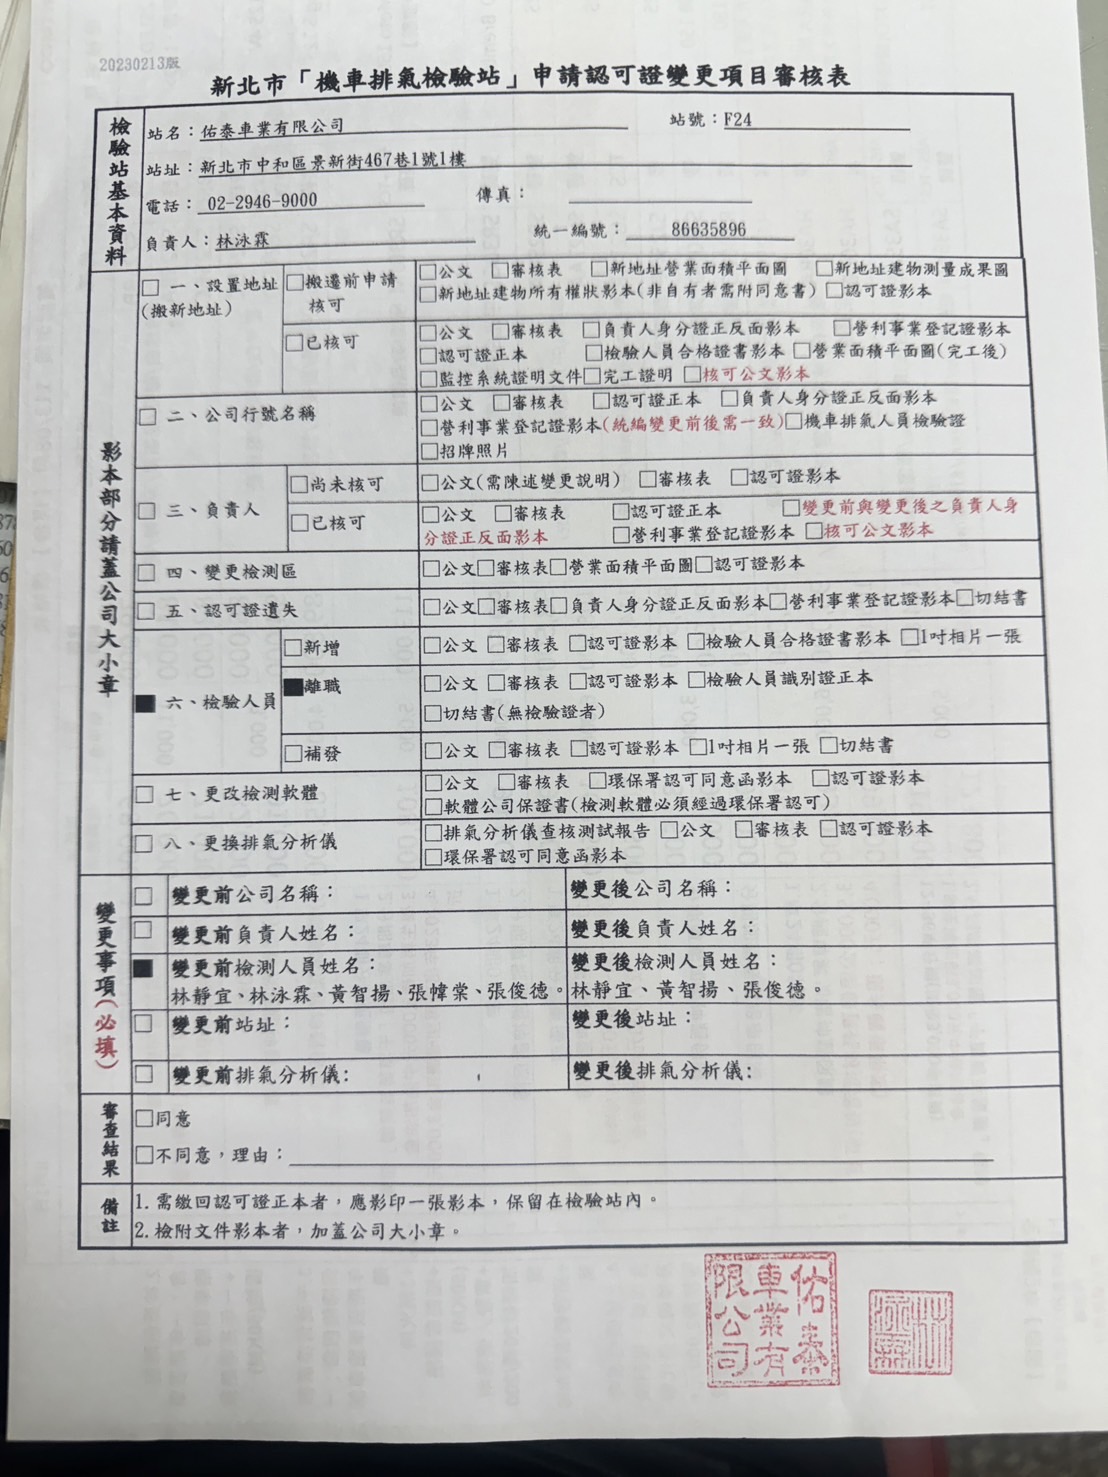 20230213版
新北市「機車排氣檢驗站」申請認可證變更項目審核表
檢驗站基本資料
站名：佑泰車業有限公司 站號：F24
站址：新北市中和區景新街467巷1號1樓
電話：02-2946-9000 傳真：
負責人：林泳霖 統一編號：86635896
影本部分請蓋公司大小章
□ 一、設置地址(搬新地址)
□搬遷前申請核可
□公文 □審核表 □新地址營業面積平面圖 □新地址建物測量成果圖
□新地址建物所有權狀影本(非自有者需附同意書) □認可證影本
□已核可
□公文 □審核表 □負責人身分證正反面影本 □營利事業登記證影本
□認可證正本 □檢驗人員合格證書影本 □營業面積平面圖(完工後)
□監控系統證明文件□完工證明 □核可公文影本
□ 二、公司行號名稱
□公文 □審核表 □認可證正本 □負責人身分證正反面影本
□營利事業登記證影本(統編變更前後需一致)□機車排氣人員檢驗證
□招牌照片
□ 三、負責人
□尚未核可
□公文(需陳述變更說明) □審核表 □認可證影本
□已核可
□公文 □審核表 □認可證正本 □變更前與變更後之負責人身
分證正反面影本 □營利事業登記證影本 □核可公文影本
□ 四、變更檢測區
□公文□審核表□營業面積平面圖□認可證影本
□ 五、認可證遺失
□公文□審核表□負責人身分證正反面影本□營利事業登記證影本□切結書
■ 六、檢驗人員
□新增
□公文 □審核表 □認可證影本 □檢驗人員合格證書影本 □1吋相片一張
■離職
□公文 □審核表 □認可證影本 □檢驗人員識別證正本
□切結書(無檢驗證者)
□補發
□公文 □審核表 □認可證影本 □1吋相片一張 □切結書
□ 七、更改檢測軟體
□公文 □審核表 □環保署認可同意函影本 □認可證影本
□軟體公司保證書(檢測軟體必須經過環保署認可)
□ 八、更換排氣分析儀
□排氣分析儀查核測試報告 □公文 □審核表 □認可證影本
□環保署認可同意函影本
變更事項(必填)
□ 變更前公司名稱： 變更後公司名稱：
□ 變更前負責人姓名： 變更後負責人姓名：
■ 變更前檢測人員姓名： 變更後檢測人員姓名：
林靜宜、林泳霖、黃智揚、張幃棠、張俊德。 林靜宜、黃智揚、張俊德。
□ 變更前站址： 變更後站址：
□ 變更前排氣分析儀: 變更後排氣分析儀:
審查結果
□同意
□不同意，理由：
備註
1. 需繳回認可證正本者，應影印一張影本，保留在檢驗站內。
2. 檢附文件影本者，加蓋公司大小章。
佑泰車業有限公司
林泳霖